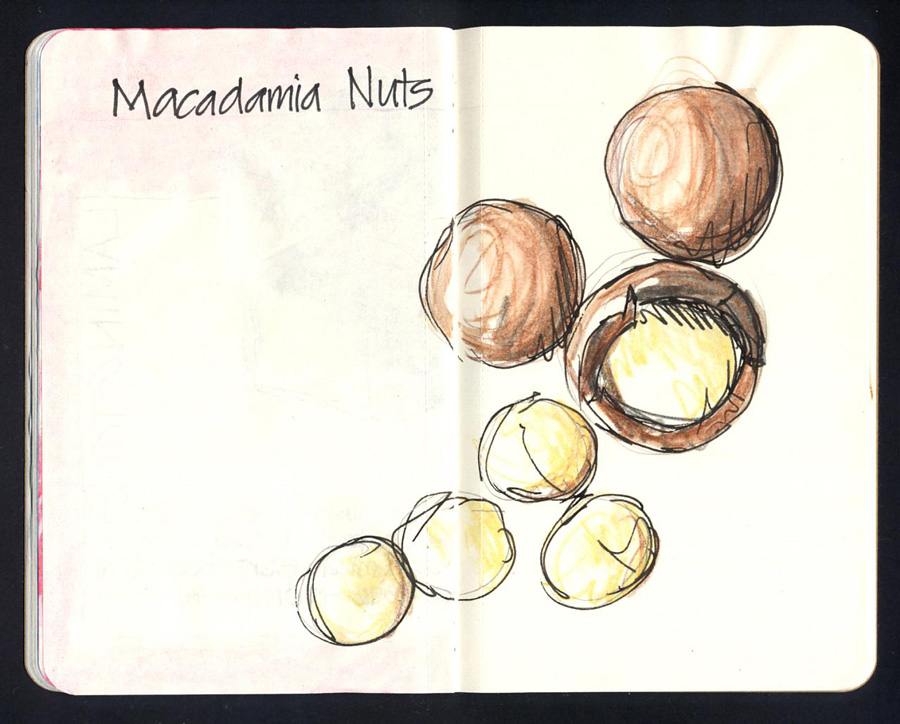 Macadamia Nuts